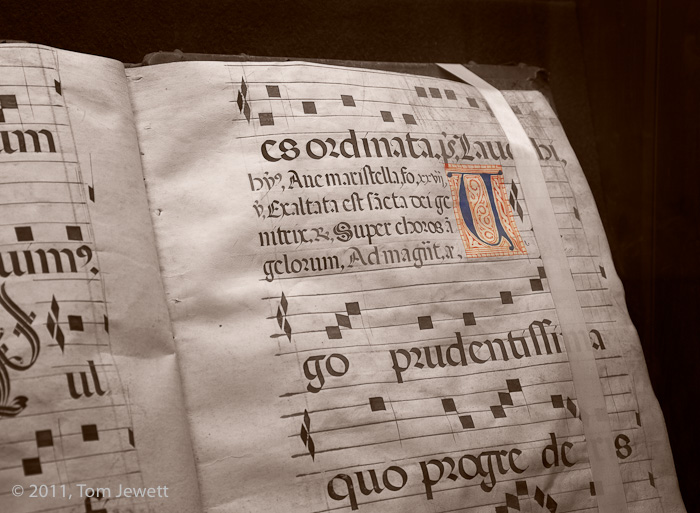 um
uum?
ul
es ordinata. ps, Lau bi,
hỹ⁹, Aue maristella, fo, xxvij,
v̄, Exaltata est sãcta dei ge
nitrix, R̷, Super choros ã
gelorum, Ad magñt, a.
U
go prudentissi a
quo progre de s
© 2011, Tom Jewett